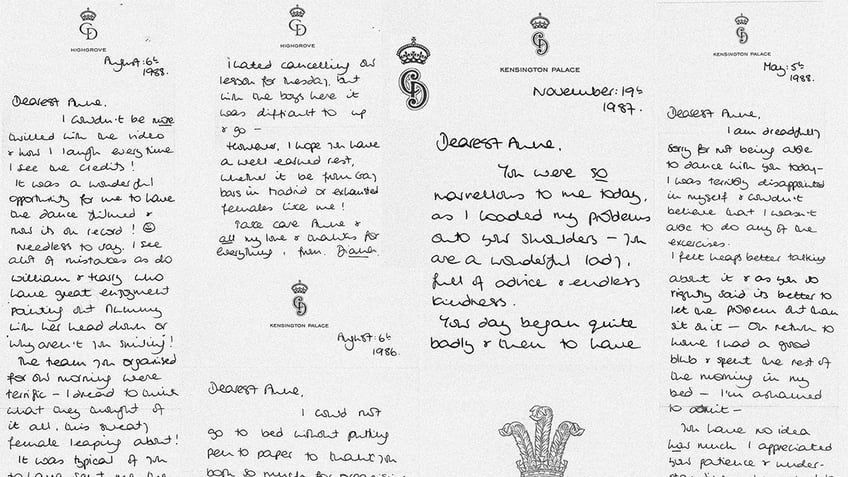 HIGHGROVE
August: 6th
1988.
Dearest Anne,
I couldn't be more
thrilled with the video
& how I laugh everytime
I see the credits!
It was a wonderful
opportunity for me to have
the dance filmed &
now its on record!
Needless to say, I see
alot of mistakes as do
William & Harry who
have great enjoyment
pointing out Mummy
with her head down or
'why aren't you smiling'!
The team you organised
for our morning were
terrific - I dread to think
what they thought of
it all, this sweaty
female leaping about!
It was typical of you
to have
HIGHGROVE
I hated cancelling our
lesson for Tuesday, but
with the boys here it
was difficult to up
& go -
However, I hope you have
a well earned rest,
whether it be from gay
bars in Madrid or exhausted
females like me!
Take care Anne &
all my love & thanks for
everything, from Diana.
KENSINGTON PALACE
August: 6th
1986.
Dearest Anne,
I could not
go to bed without putting
pen to paper to thank you
both so much for organising
KENSINGTON PALACE
November: 19th
1987.
Dearest Anne,
You were so
marvellous to me today,
as I loaded my problems
onto your shoulders - you
are a wonderful lady,
full of advice & endless
kindness.
Your day began quite
badly & then to have
KENSINGTON PALACE
May: 5th
1988.
Dearest Anne,
I am dreadfully
sorry for not being able
to dance with you today -
I was terribly disappointed
in myself & couldn't
believe that I wasn't
able to do any of the
exercises.
I felt heaps better talking
about it & as you so
rightly said its better to
let the problem out than
sit on it - On return to
home I had a good
blub & spent the rest of
the morning in my
bed - I'm ashamed
to admit -
You have no idea
how much I appreciated
your patience & under-